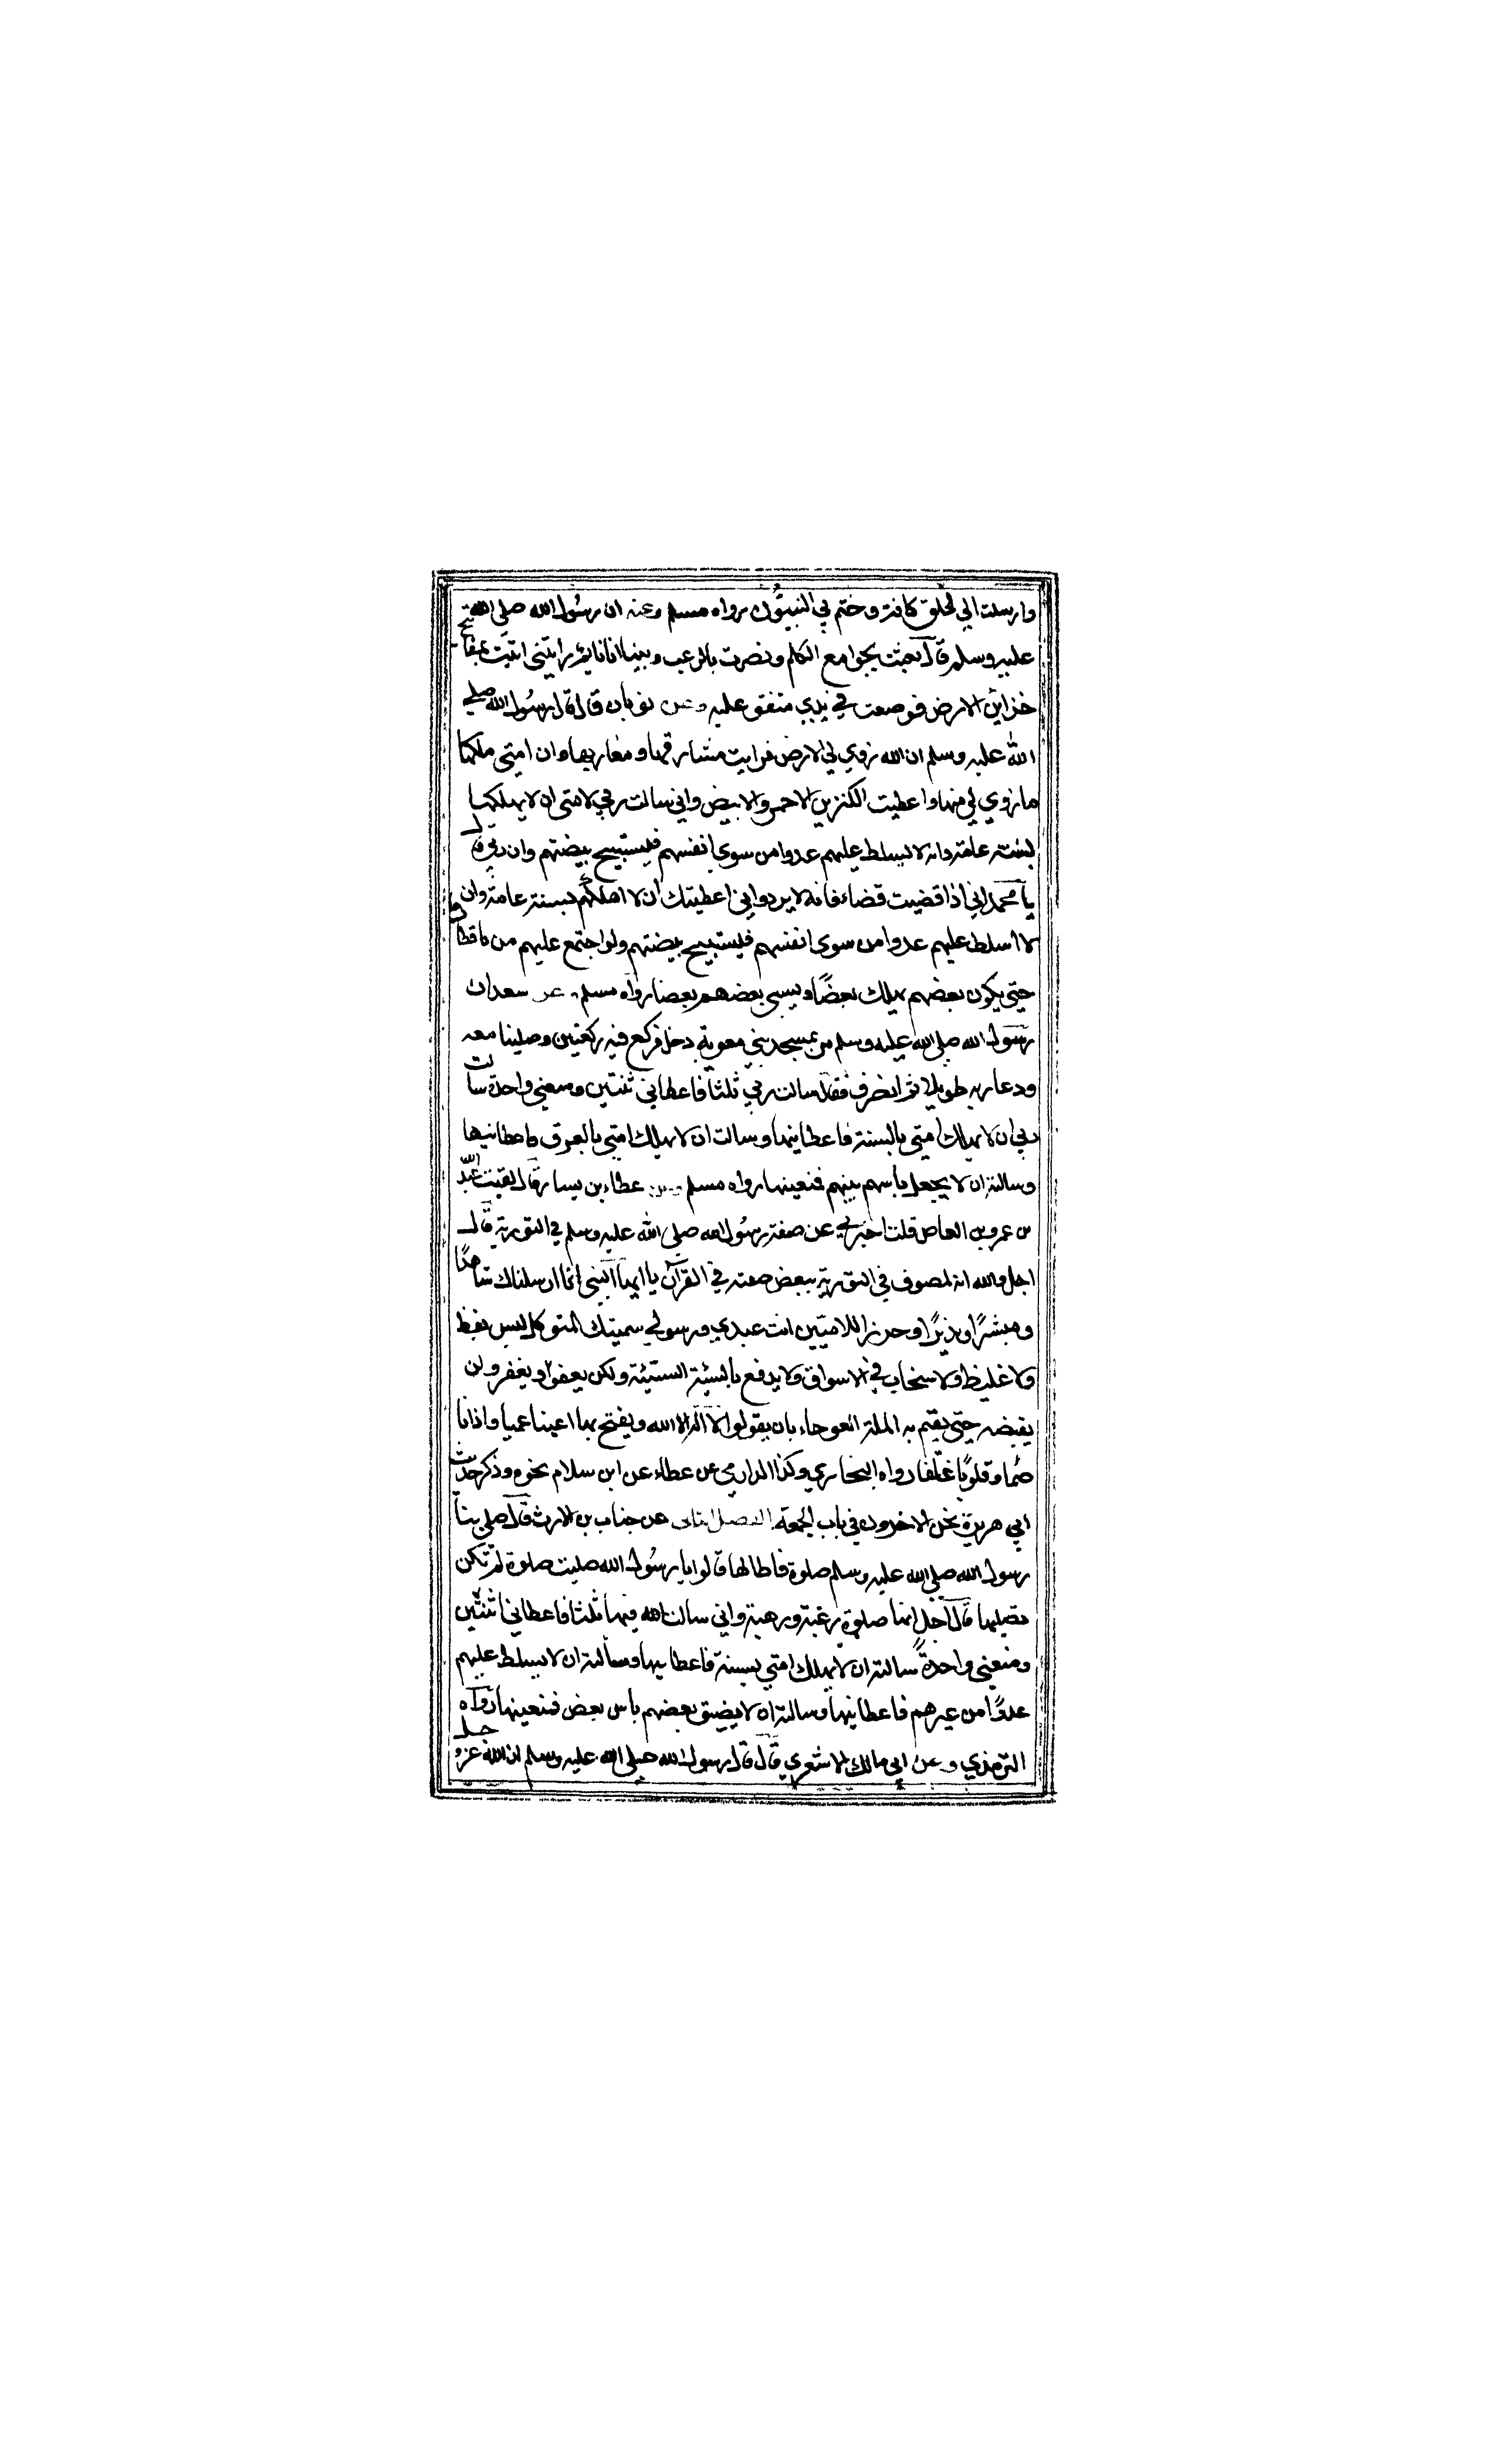 وارسلت الي الخلق كافة وختم بي النبيّون رواه مسلم وعنه ان رسول الله صلى الله
عليه وسلم قال بعثت بجوامع الكلم ونصرت بالرعب وبينا انا نايم رايتني اتيت بمفاتيح
خزائن الارض فوضعت في يدي متفق عليه وعن ثوبان قال قال رسول الله صلي
الله عليه وسلم ان الله زوي لي الارض فرايت مشارقها ومغاربها وان امتي ملكها
ما زوي لي منها واعطيت الكنزين الاحمر والابيض واني سالت ربي لامتى ان لا يهلكها
بسنة عامة وان لا يسلط عليهم عدوا من سوي انفسهم فيستبيح بيضتهم وان ربي قال
يا محمد اني اذا قضيت قضاء فانه لا يرد واني اعطيتك ان لا اهلكهم بسنة عامة وان
لا اسلط عليهم عدوا من سوى انفسهم فيستبيح بيضتهم ولو اجتمع عليهم من باقطارها
حتي يكون بعضهم يهلك بعضًا ويسبى بعضهم بعضا رواه مسلم وعن سعد ان
رسول الله صلى الله عليه وسلم مر بمسجد بني معوية دخل فركع فيه ركعتين وصلينا معه
ودعا ربه طويلا ثم انصرف فقال سالت ربي ثلثا فاعطاني ثنتين ومنعني واحدة سالت
ربي ان لا يهلك امتي بالسنة فاعطانيها وسالت ان لا يهلك امتي بالغرق فاعطانيها
وسالته ان لا يجعل باسهم بينهم فمنعنيها رواه مسلم وعن عطاء بن يسار قال لقيت عبد الله
بن عمرو بن العاص قلت اخبرني عن صفة رسول الله صلي الله عليه وسلم في التورية قال
اجل والله انه لموصوف في التورية ببعض صفته في القرآن يا ايها النبي انا ارسلناك شاهدًا
ومبشرًا ونذيرًا وحرزا للاميّين انت عبدي ورسولي سميتك المتوكل ليس بفظ
ولا غليظ ولا سخاب في الاسواق ولا يدفع بالسيئة السيّئة ولكن يعفو ويغفر ولن
يقبضه حتى يقيم به الملة العوجاء بان يقولوا لا اله الا الله ويفتح بها اعينا عميا واذانا
صُما وقلوبًا غلفا رواه البخاري وكذا الدارمي عن عطاء عن ابن سلام نحوه وذكر حديث
ابي هريرة نحن الاخرون في باب الجمعة الفصل الثاني عن خباب بن الارت قال صلى بنا
رسول الله صلي الله عليه وسلم صلوة فاطالها قالوا يا رسول الله صليت صلوة لم تكن
تصليها قال اجل انها صلوة رغبة ورهبة واني سالت الله فيها ثلثا فاعطاني اثنتين
ومنعني واحدةً سالته ان لا يهلك امتي بسنة فاعطانيها وسالته ان لا يسلط عليهم
عدوًا من غيرهم فاعطانيها وسالته ان لا يضيق بعضهم باس بعض فمنعنيها رواه
الترمذي وعن ابي مالك الاشعري قال قال رسول الله صلى الله عليه وسلم ان الله عز وجل